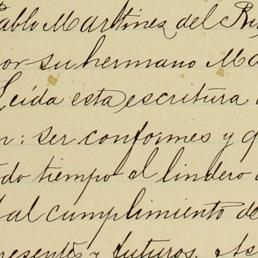 Pablo Martinez del Rio
por su hermano Ma
Leida esta escritura
n: ser conformes y q
do tiempo al lindero
al cumplimiento de
presentes y futuros. As